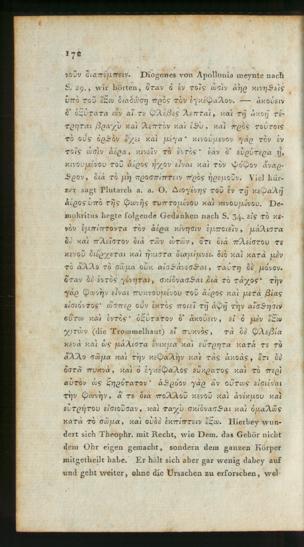 172
νοῦν διαπέμπειν. Diogenes von Apollonia meynte nach
§. 29., wir hörten, ὅταν ὁ ἐν τοῖς ὠσὶν ἀὴρ κινηθεὶς
ὑπὸ τοῦ ἔξω διαδώση πρὸς τὸν ἐγκέφαλον. — ἀκούειν
δ' ὀξύτατα ὧν αἵ τε φλέβες λεπταὶ, καὶ τῇ ἀκοῇ τέ-
τρηται βραχὺ καὶ λεπτὸν καὶ ἰθὺ, καὶ πρὸς τούτοις
τὸ οὖς ὀρθὸν ἔχει καὶ μέγα· κινούμενον γὰρ τὸν ἐν
τοῖς ὠσὶν ἀέρα, κινεῖν τὸ ἐντός· ἐὰν δ' εὐρύτερα ᾖ,
κινουμένου τοῦ ἀέρος ἦχον εἶναι καὶ τὸν ψόφον ἄναρ-
θρον, διὰ τὸ μὴ προσπίπτειν πρὸς ἠρεμοῦν. Viel kür-
zer sagt Plutarch a. a. O. Διογένης τοῦ ἐν τῇ κεφαλῇ
ἀέρος ὑπὸ τῆς φωνῆς τυπτομένου καὶ κινουμένου. De-
mokritus hegte folgende Gedanken nach §. 34. εἰς τὸ κε-
νὸν ἐμπίπτοντα τὸν ἀέρα κίνησιν ἐμποιεῖν, μάλιστα
δὲ καὶ πλεῖστον διὰ τῶν ὤτων, ὅτι διὰ πλείστου τε
κενοῦ διέρχεται καὶ ἥκιστα διαμίμνει· διὸ καὶ κατὰ μὲν
τὸ ἄλλο τὸ σῶμα οὐκ αἰσθάνεσθαι, ταύτῃ δὲ μόνον.
ὅταν δὲ ἐντὸς γένηται, σκίδνασθαι διὰ τὸ τάχος· τὴν
γὰρ φωνὴν εἶναι πυκνουμένου τοῦ ἀέρος καὶ μετὰ βίας
εἰσιόντος· ὥσπερ οὖν ἐκτὸς ποιεῖ τῇ ἁφῇ τὴν αἴσθησιν
οὕτω καὶ ἐντός· ὀξύτατον δ' ἀκούειν, εἰ ὁ μὲν ἔξω
χιτὼν (die Trommelhaut) εἴη πυκνὸς, τὰ δὲ φλεβία
κενὰ καὶ ὡς μάλιστα ἄνικμα καὶ εὔτρητα κατά τε τὸ
ἄλλο σῶμα καὶ τὴν κεφαλὴν καὶ τὰς ἀκοὰς, ἔτι δὲ
ὀστᾶ πυκνὰ, καὶ ὁ ἐγκέφαλος εὔκρατος καὶ τὸ περὶ
αὐτὸν ὡς ξηρότατον· ἄθροον γὰρ ἂν οὕτως εἰσιέναι
τὴν φωνὴν, ἅ τε διὰ πολλοῦ κενοῦ καὶ ἀνίκμου καὶ
εὐτρήτου εἰσιοῦσαν, καὶ ταχὺ σκίδνασθαι καὶ ὁμαλῶς
κατὰ τὸ σῶμα, καὶ οὐδὲ ἐκπίπτειν ἔξω. Hierbey wun-
dert sich Theophr. mit Recht, wie Dem. das Gehör nicht
dem Ohr eigen gemacht, sondern dem ganzen Körper
mitgetheilt habe. Er hält sich aber gar wenig dabey auf
und geht weiter, ohne die Ursachen zu erforschen, wel-